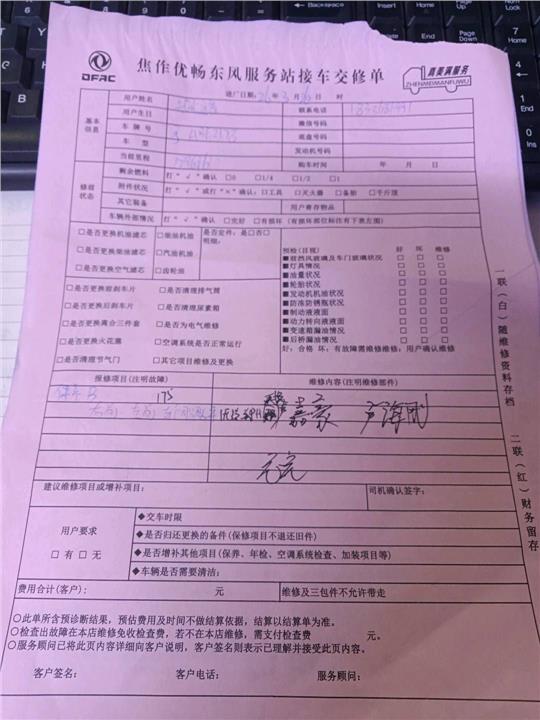 DFAC
焦作优畅东风服务站接车交修单
真美满服务
ZHENMEIMANFUWU
进厂日期: 年 3 月 日 时
基本信息
用户姓名
联系电话
用户生日
微信号码
车牌号
底盘号码
车型
发动机号码
当前里程
购车时间 年 月 日
修前状态
剩余燃料 打“√”确认 □0 □1/4 □1/2 □1
附件状况 打“√”或打“×”确认: □工具 □灭火器 □备胎 □千斤顶
其它装备 用户寄存物品
车辆外部情况 打“√”确认 □完好 □有损坏 (有损坏部位标注有下表左图)
□是否更换机油滤芯 □柴油机油
□是否更换柴油滤芯 □汽油机油
□是否更换空气滤芯 □齿轮油
是否定件: 是□否□
明细:
□是否更换前刹车片 □是否清理排气筒
□是否更换后刹车片 □是否清理尿素箱
□是否更换离合三件套 □是否为电气维修
□是否更换火花塞 □空调系统是否正常运行
□是否清理节气门 □其它项目维修及更换
预检(目视) 好 坏 维修
■前挡风玻璃及车门玻璃状况 □ □ □
■灯具情况 □ □ □
■油量状况 □ □ □
■轮胎状况 □ □ □
■发动机机油状况 □ □ □
■防冻防锈瓶状况 □ □ □
■制动液液面 □ □ □
■动力转向液液面 □ □ □
■变速箱漏油情况 □ □ □
■后桥漏油情况 □ □ □
好: 合格 坏: 有故障需维修维修: 用户确认维修
报修项目(注明故障) 维修内容(注明维修部件)
175
建议维修项目或增补项目:
司机确认签字:
用户要求
□有 □无
◆交车时限
◆是否归还更换的备件(保修项目不退还旧件)
◆是否增补其他项目(保养、年检、空调系统检查、加装项目等)
◆车辆是否需要清洁:
费用合计(客户): 元 维修及三包件不允许带走
○此单所含预诊断结果,预估费用及时间不做结算依据,结算以结算单为准。
○检查出故障在本店维修免收检查费,若不在本店维修,需支付检查费 元。
○服务顾问已将此页内容详细向客户说明,客户签名则表示已理解并接受此页内容。
客户签名: 客户电话: 服务顾问:
一联(白)随维修资料存档
二联(红)财务留存